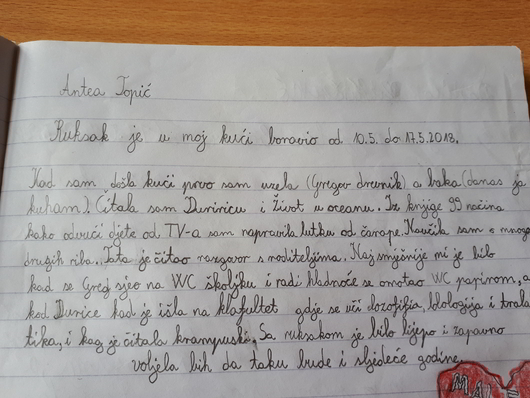 Antea Topić
Ruksak je u moj kući boravio od 10.5. do 17.5.2018.
Kad sam došla kući prvo sam uzela (Gregov drevnik) a baka (danas ja
kuham). Čitala sam Duriricu i Život u oceanu. Iz knjige 99 načina
kako odvući djete od TV-a sam napravila lutku od čarape. Naučila sam o mnogo
drugih riba. Tata je čitao razgovor s roditeljima. Najsmješnije mi je bilo
kad se Greg sjeo na WC školjku i radi hladnoće se omotao WC papirom, a
kod Durice kad je išla na klafultet gdje se uči dozofija, blologija i
tika, i kad je čitala krampuski. Sa ruksakom je bilo lijepo i zapravo
voljela bih da taku bude i sljedeće godine.